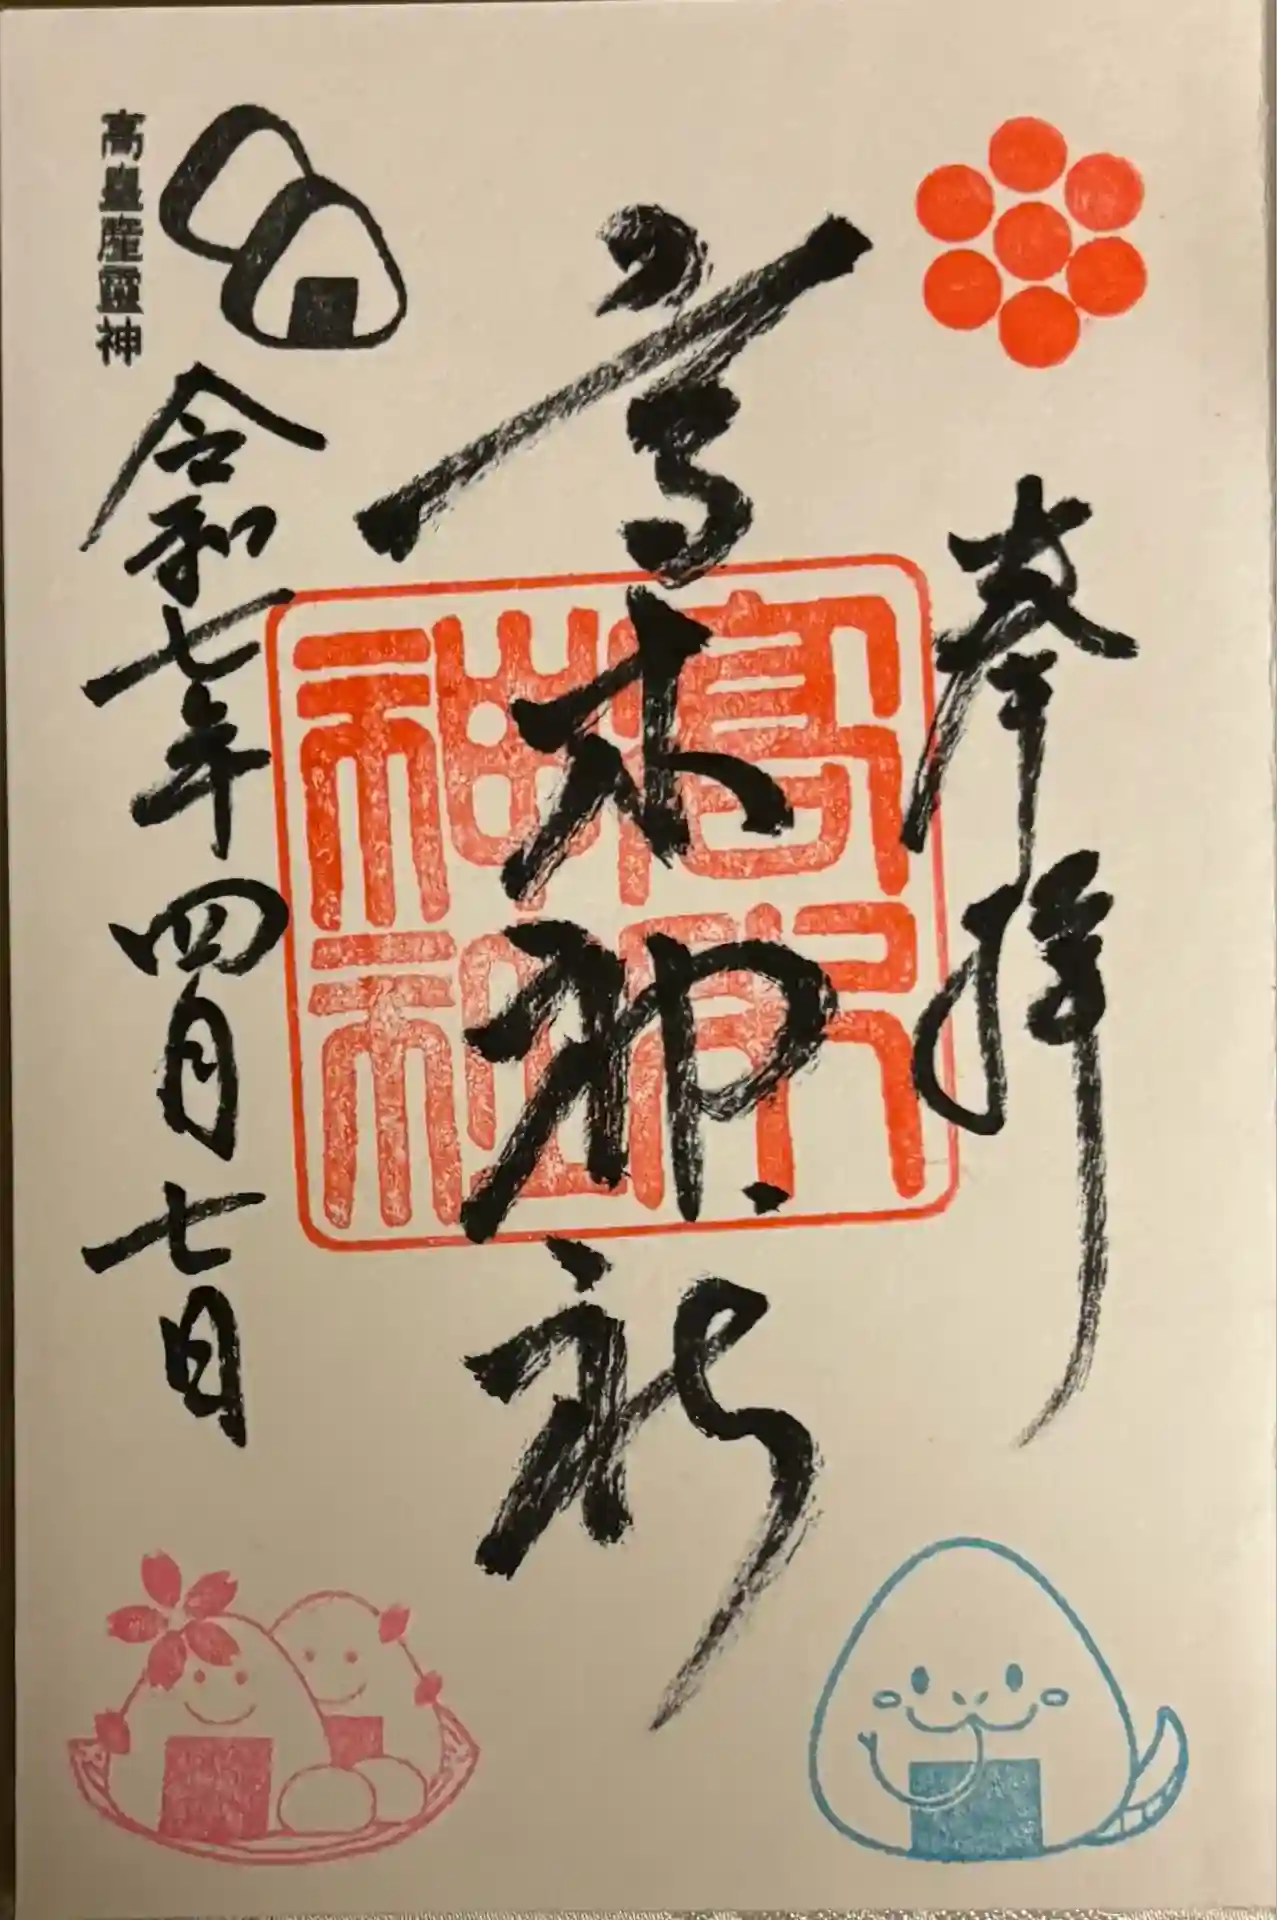 奉拝
高木神社
高木神社
令和七年四月七日
高皇産霊神